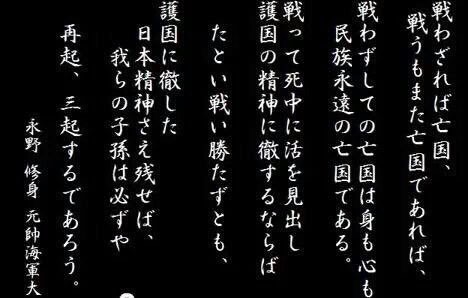 戦わざれば亡国、
戦うもまた亡国であれば、
戦わずしての亡国は身も心も
民族永遠の亡国である。
戦って死中に活を見出し
護国の精神に徹するならば
たとい戦い勝たずとも、
護国に徹した
日本精神さえ残せば、
我らの子孫は必ずや
再起、三起するであろう。
永野 修身 元帥海軍大